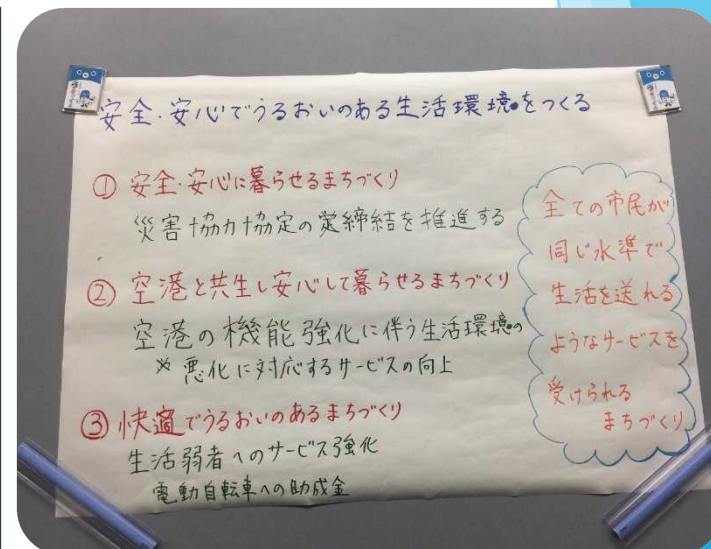 安全・安心でうるおいのある生活環境をつくる
① 安全・安心に暮らせるまちづくり
災害協力協定の締結を推進する
② 空港と共生し安心して暮らせるまちづくり
空港の機能強化に伴う生活環境の
※ 悪化に対応するサービスの向上
③ 快適でうるおいのあるまちづくり
生活弱者へのサービス強化
電動自転車への助成金
全ての市民が
同じ水準で
生活を送れる
ようなサービスを
受けられる
まちづくり